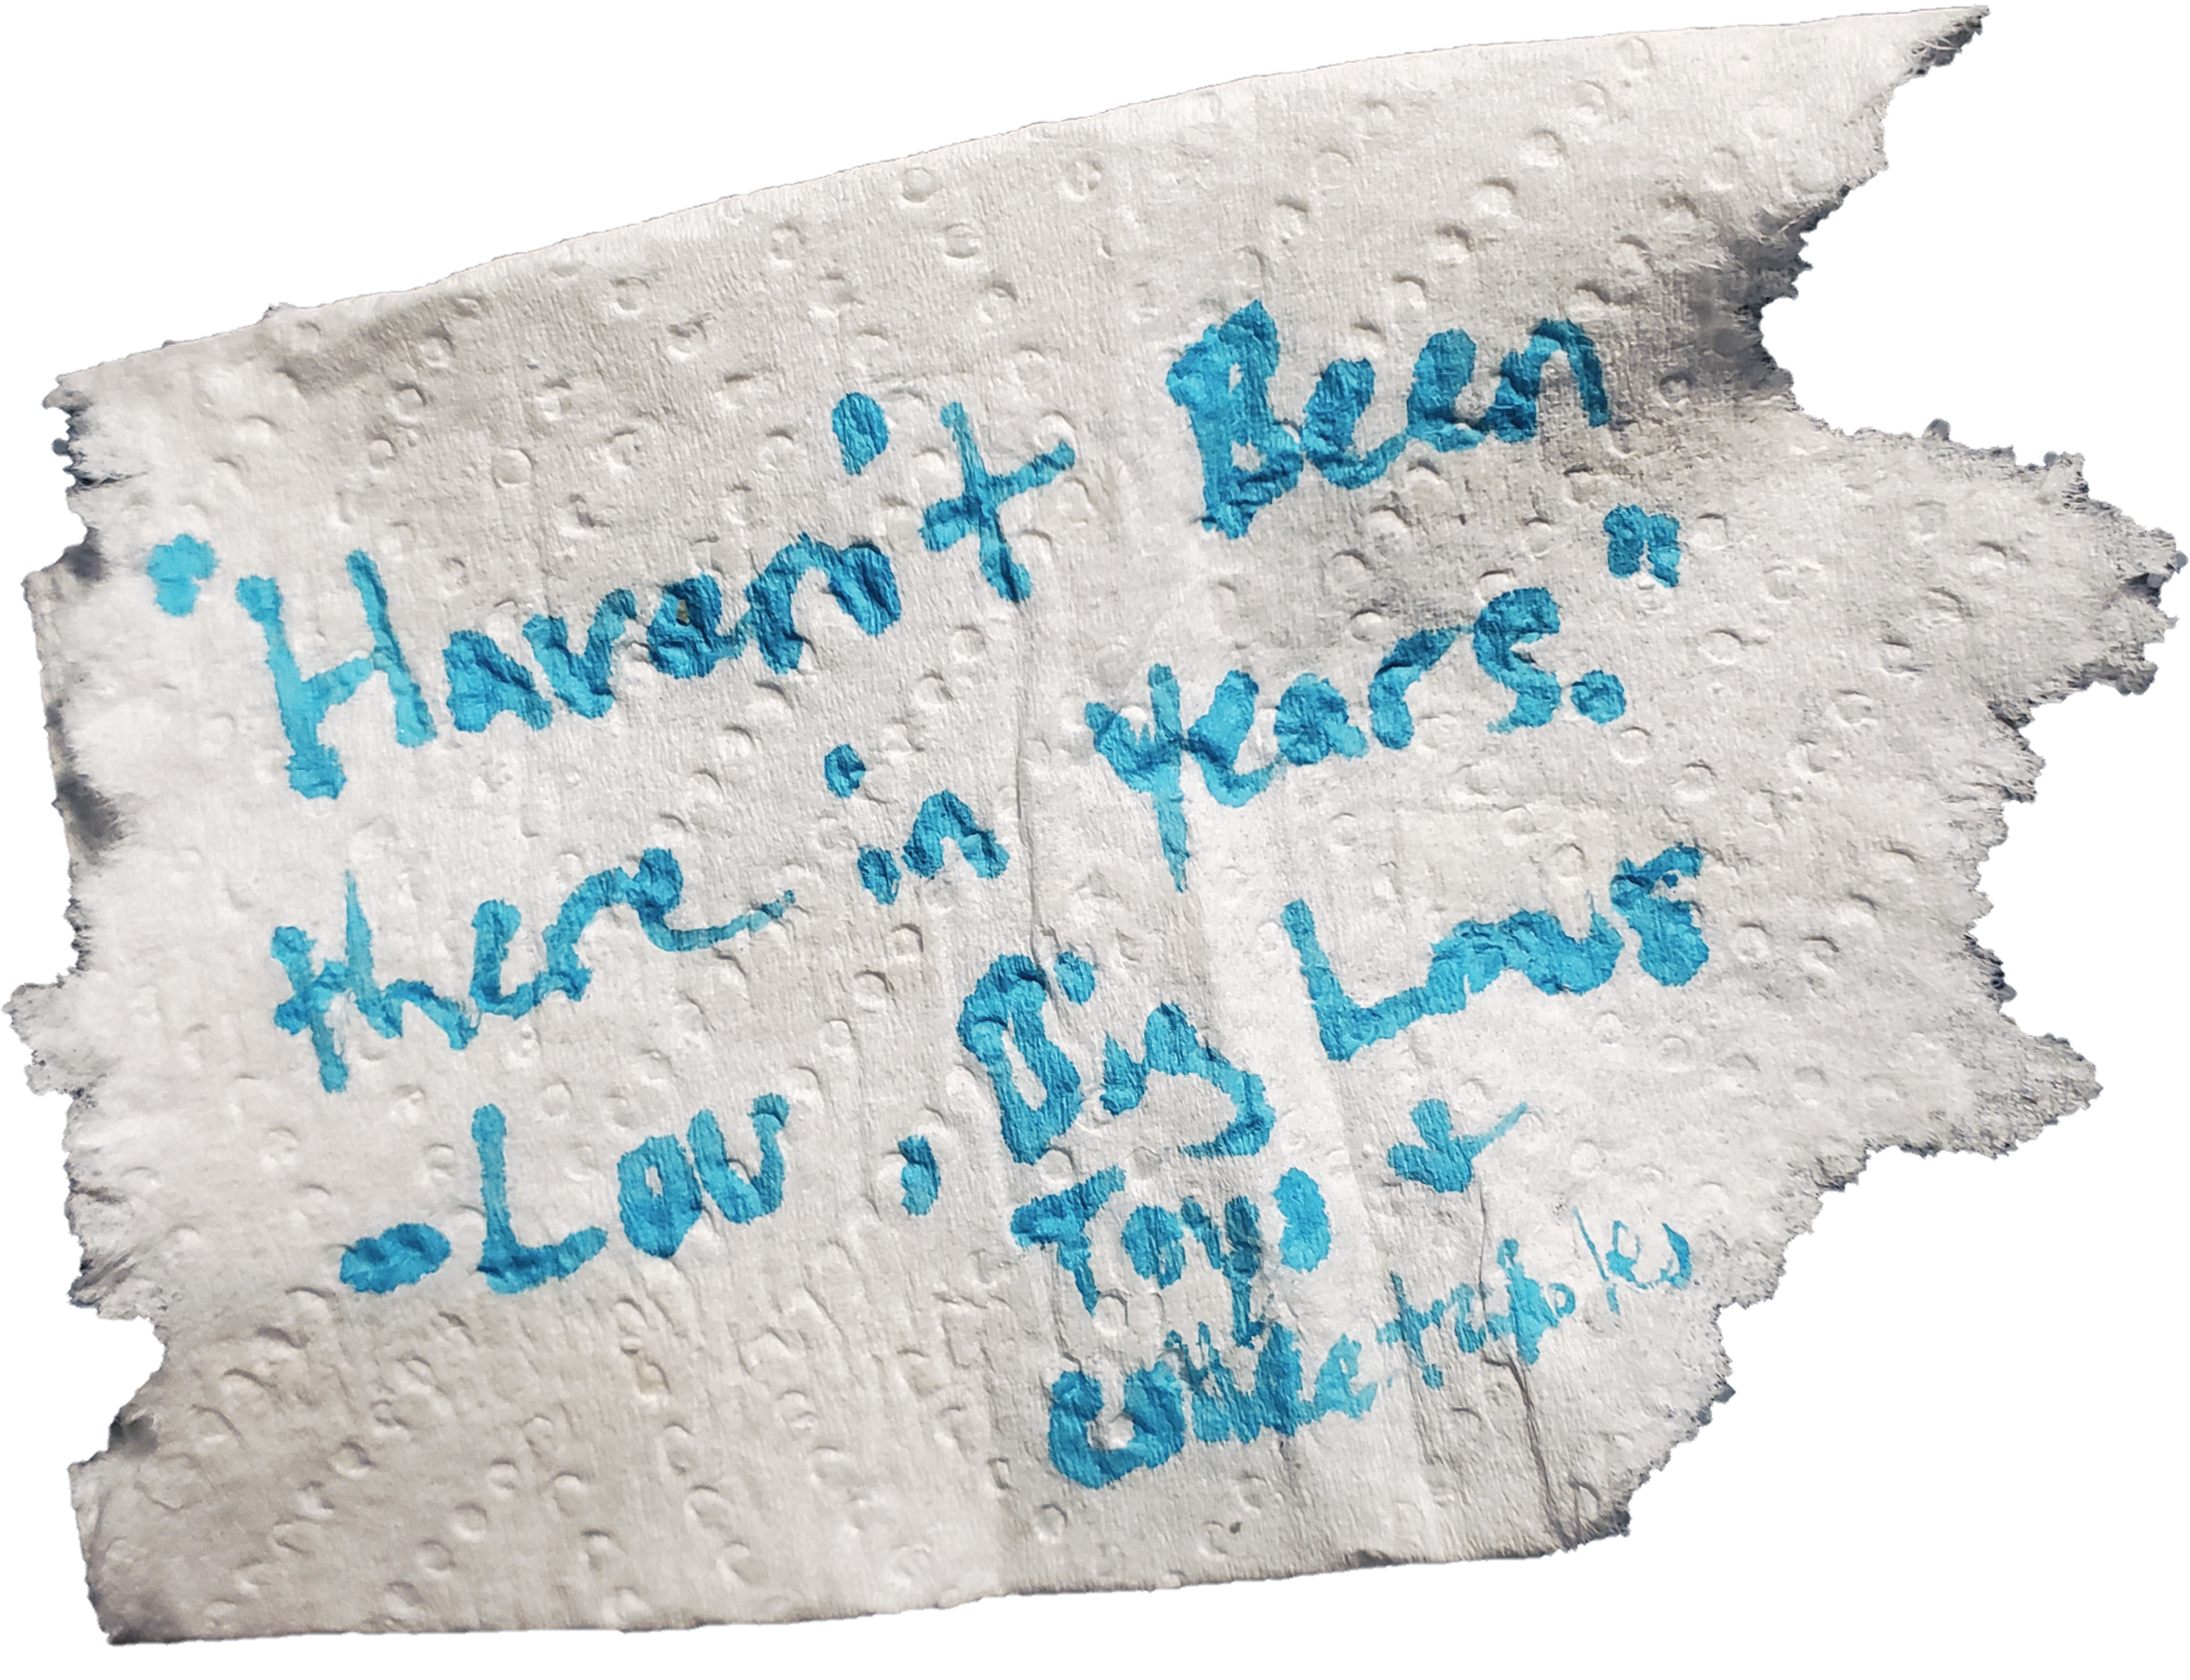 "Haven't Been
there in years."
- Lou, Big Lou's
Toys &
Collectables